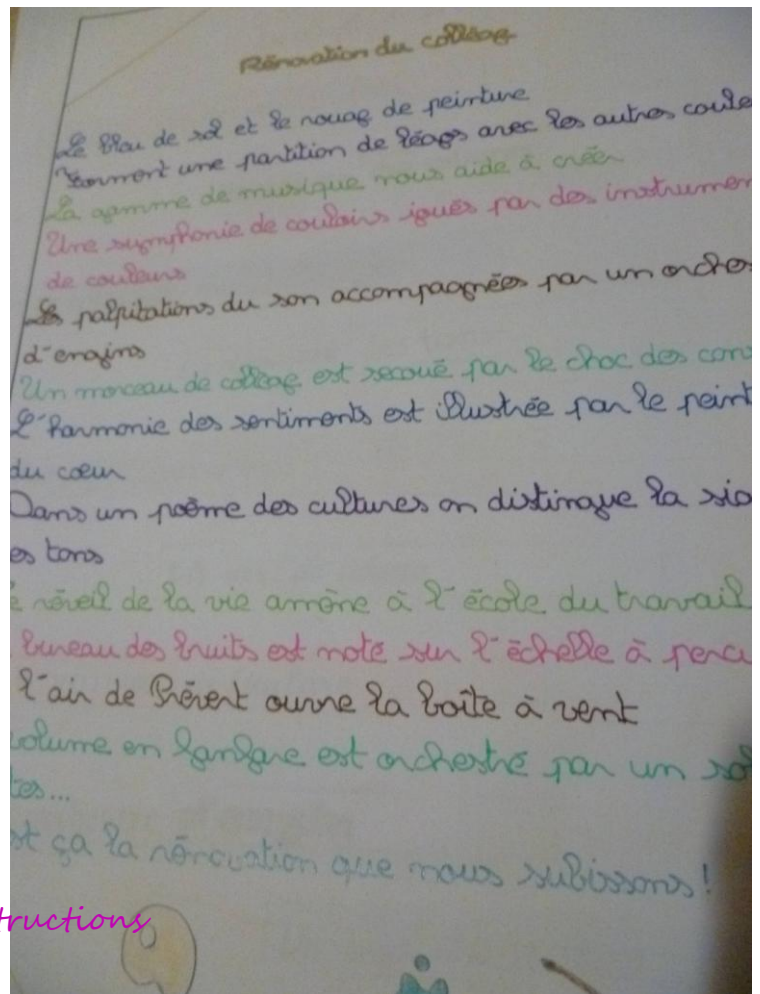 Rénovation du collège
Le bleu de sol et le nouag de peinture
forment une partition de légos avec les autres coule
La gamme de musique nous aide à créer
Une symphonie de couloirs joués par des instrumen
de couleurs
Les palpitations du son accompagnées par un orches
d'engins
Un morceau de collège est secoué par le choc des cons
L'harmonie des sentiments est illustrée par le peint
du cœur
Dans un poème des cultures on distingue la
es tons
réveil de la vie amène à l'école du travail
bureau des bruits est noté sur l'échelle à perc
l'air de Prévert ouvre la boîte à vent
volume en langue est orchestré par un sol
tes...
st ça la rénovation que nous subissons!
tructions